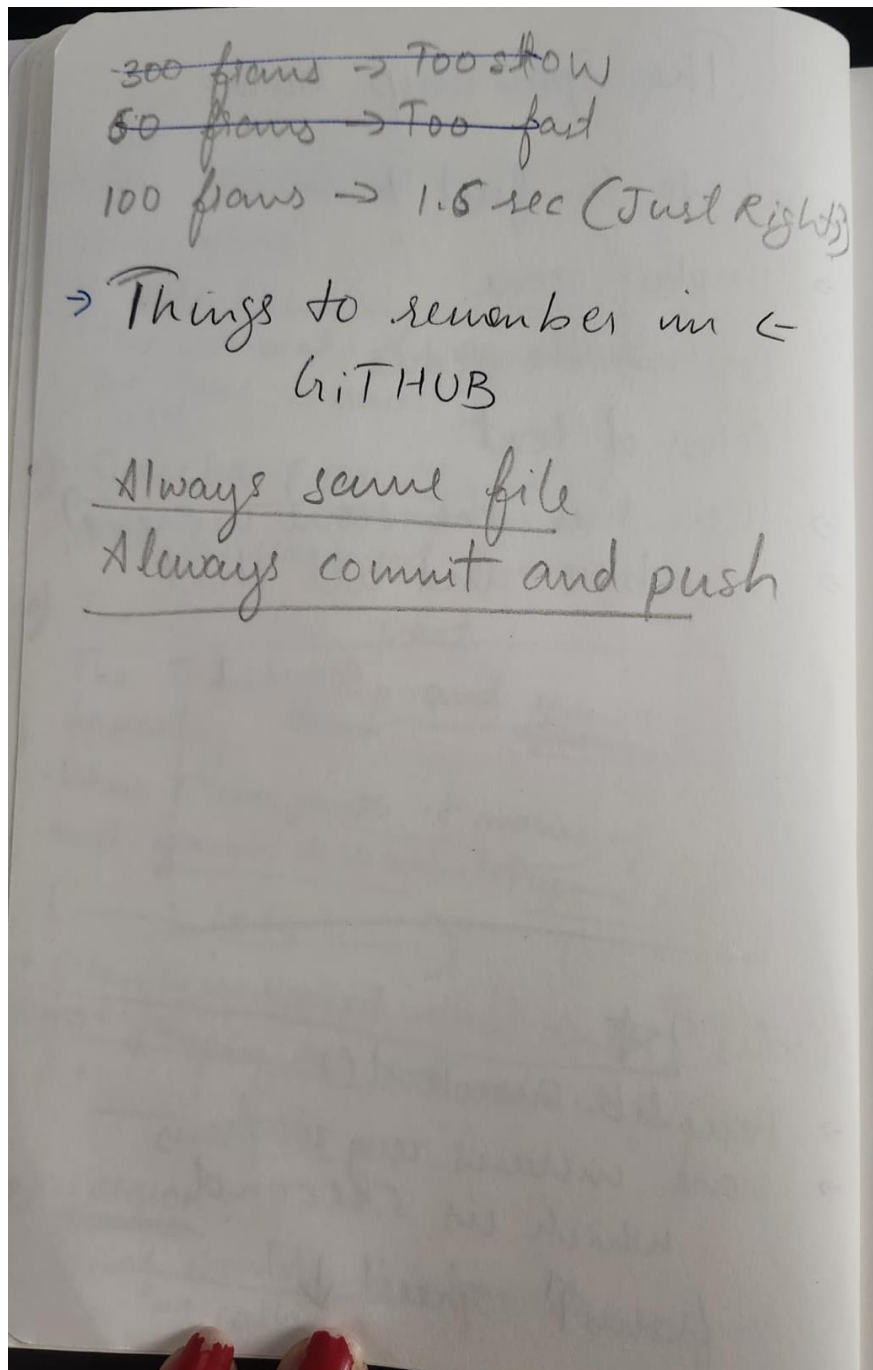 300 frams → Too slow
60 frams → Too fast
100 frams → 1.6 sec (Just Right)
→ Things to remember in ←
GiTHUB
Always same file
Always commit and push